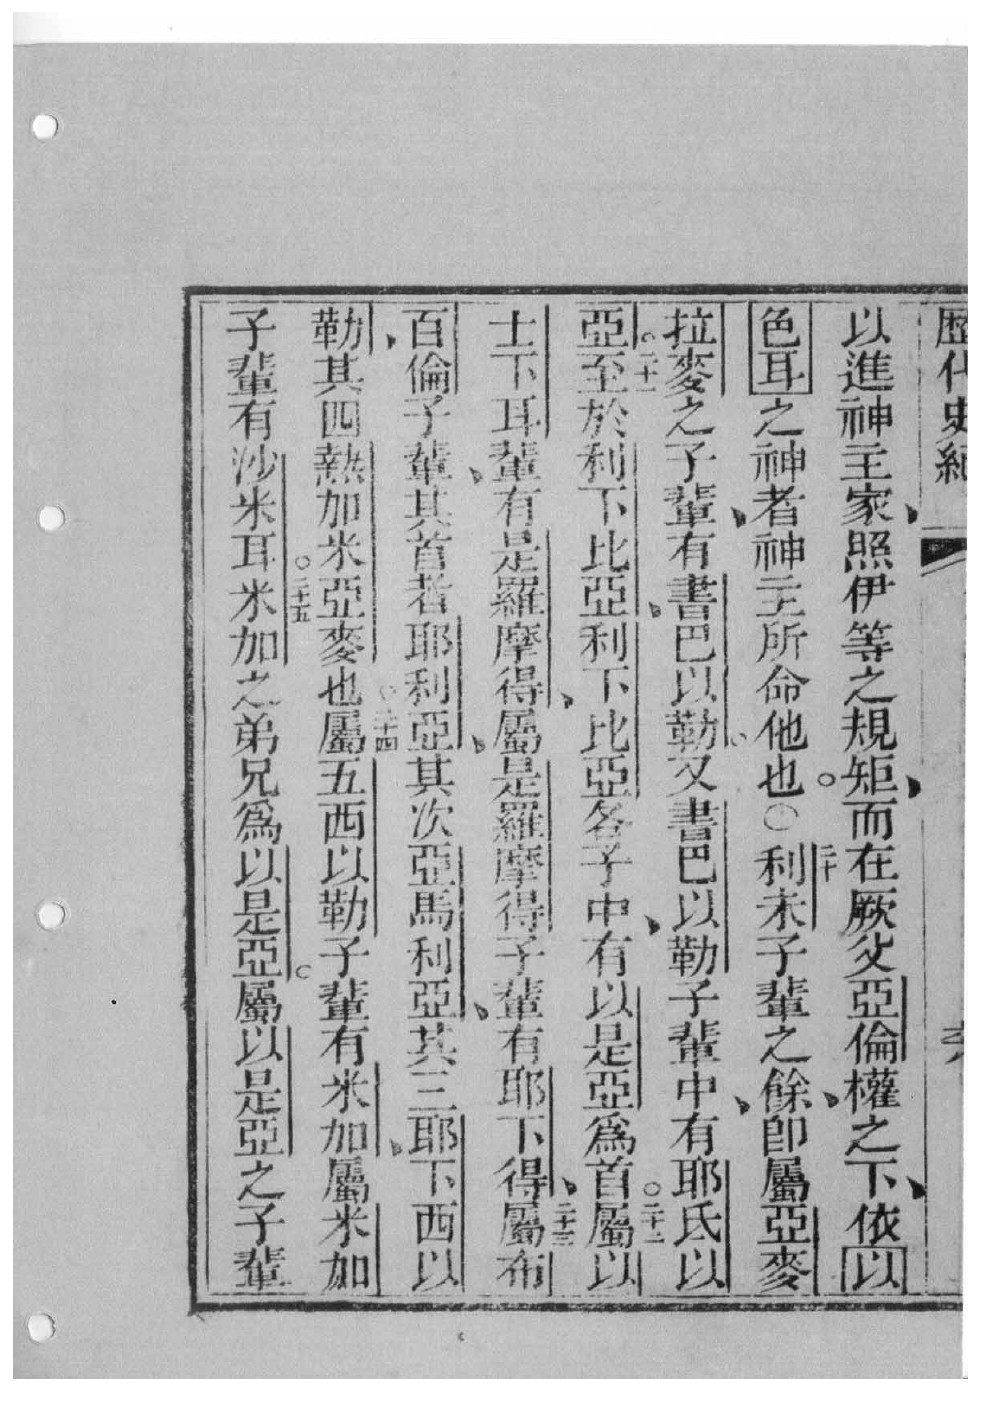 歷代史紀
以進神主家、照伊等之規矩、而在厥父亞倫權之下、依以
色耳之神者神主所命他也。○二十利未子輩之餘、即屬亞麥
拉麥之子輩、有書巴以勒。又書巴以勒子輩中、有耶氏以
亞。二十一至於利下比亞、利下比亞各子中、有以是亞為首。二十二屬以
士下耳輩有是羅摩得、屬是羅摩得子輩有耶下得、二十三屬布
百倫子輩、其首者耶利亞、其次亞馬利亞、其三耶下西以
勒、其四熱加米亞麥也。二十四屬五西以勒子輩有米加、屬米加
子輩有沙米耳。二十五米加之弟兄為以是亞。屬以是亞之子輩